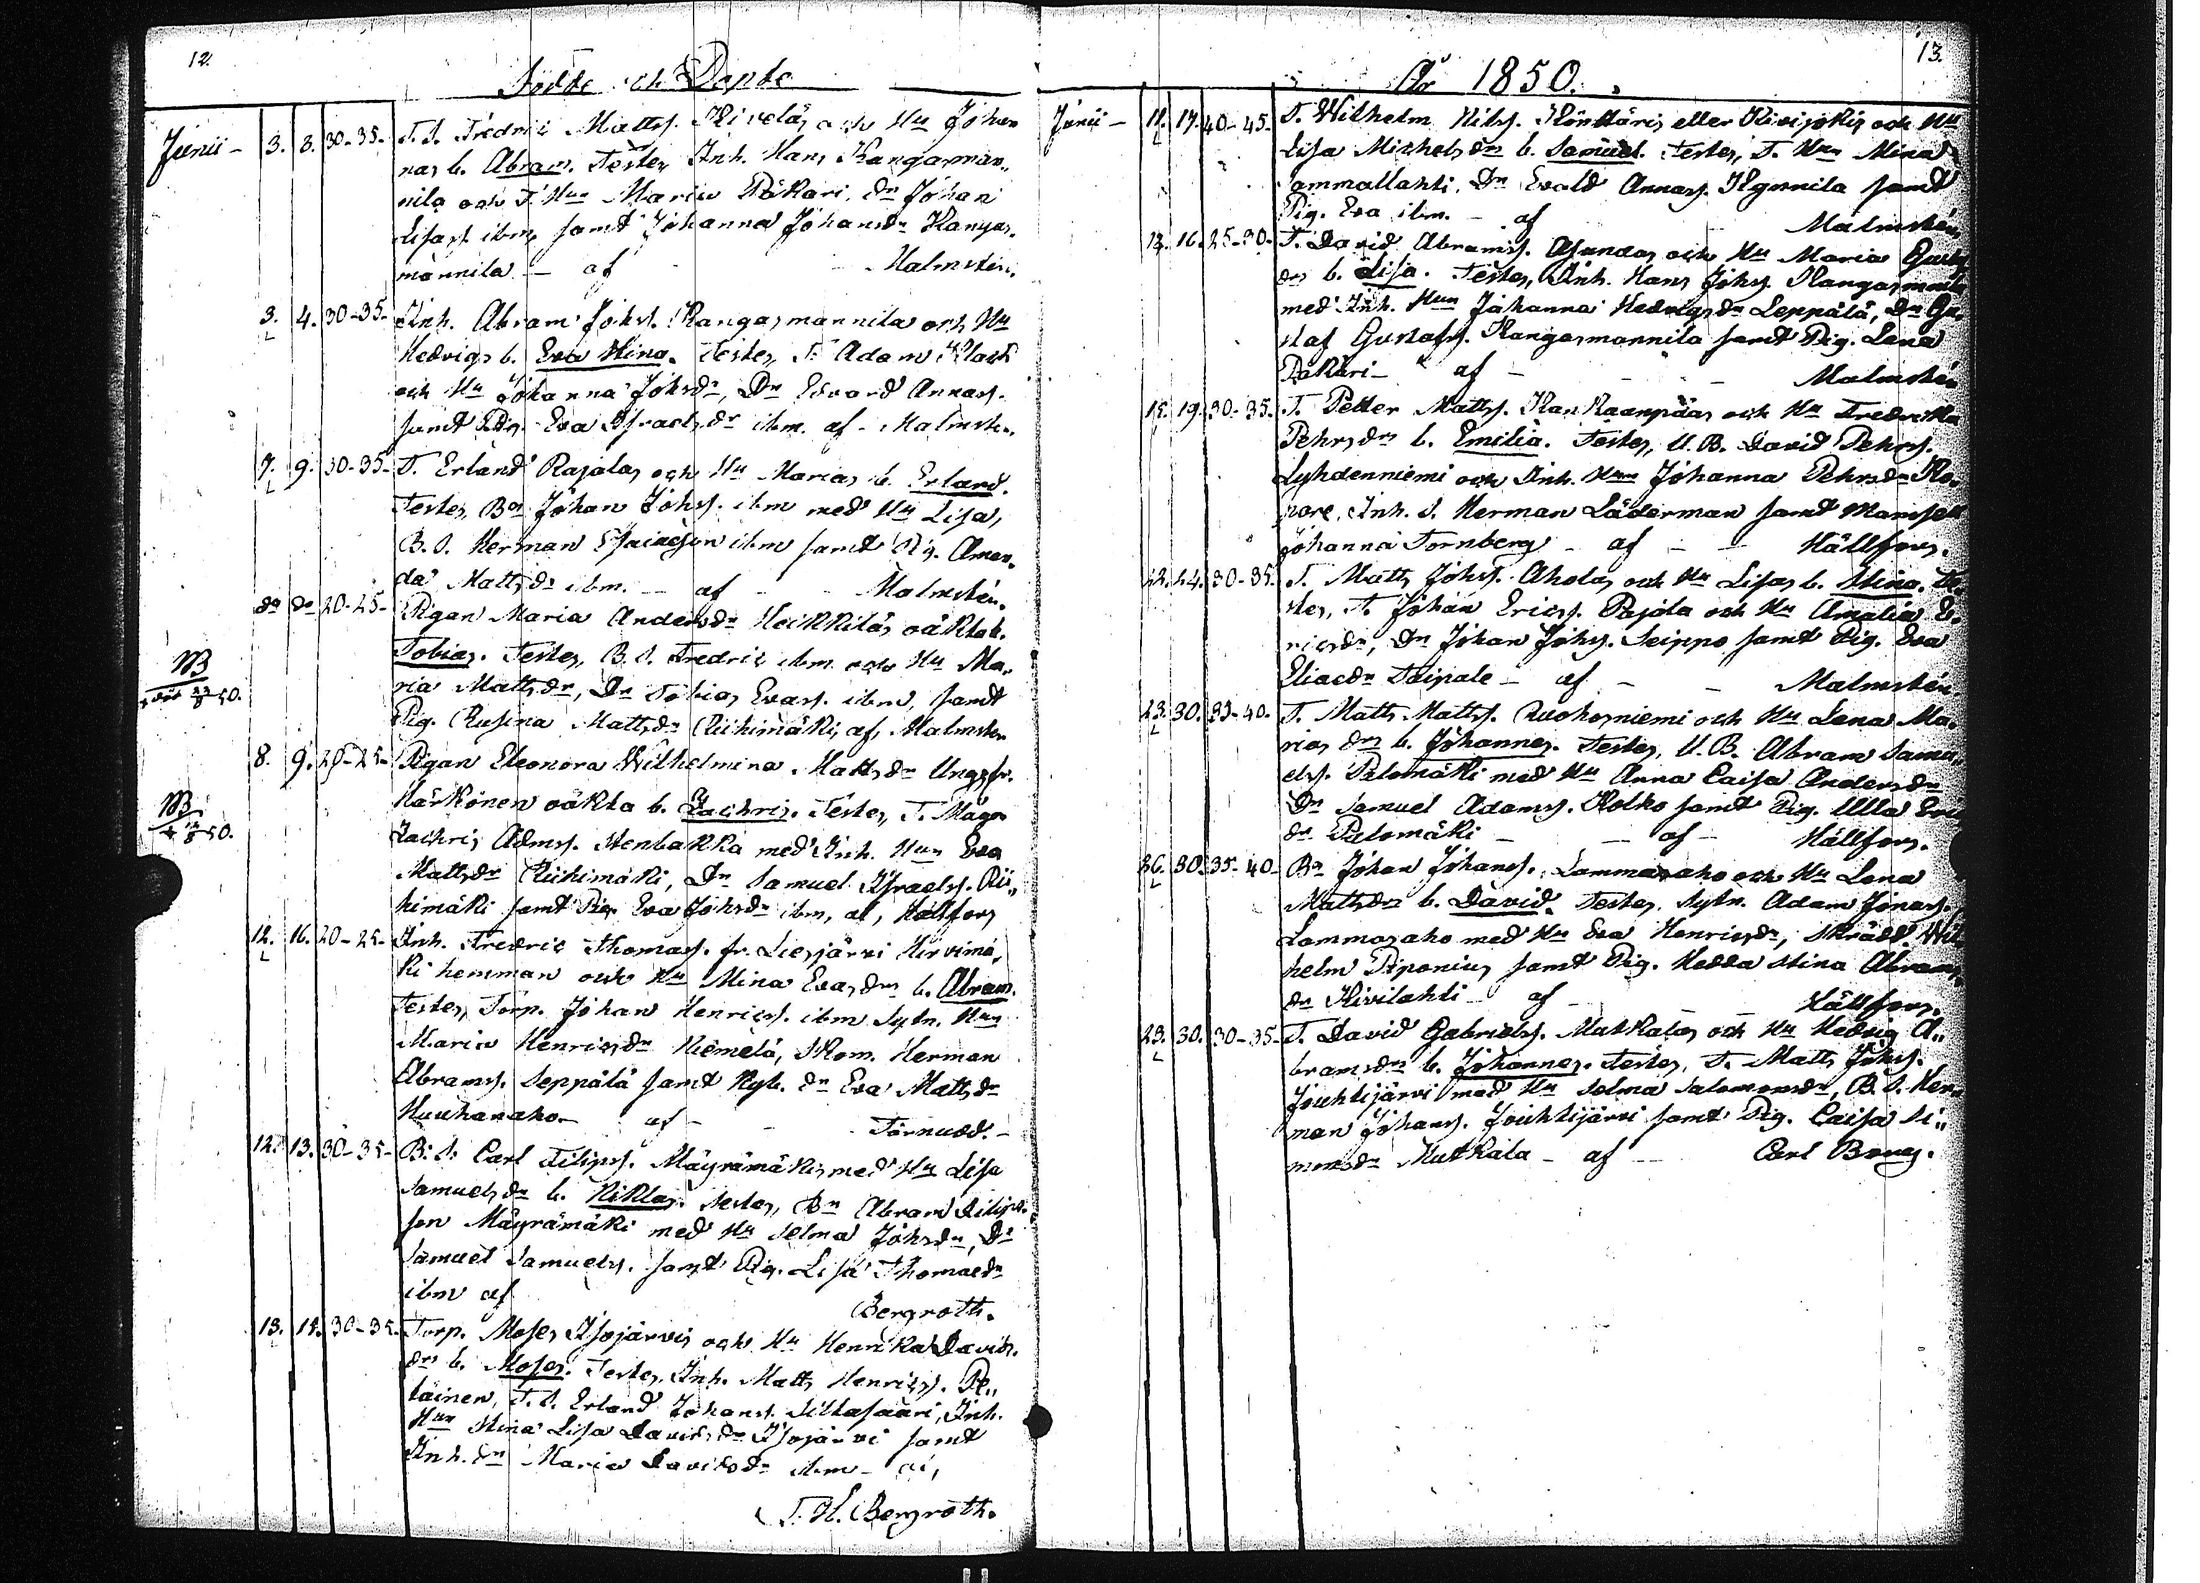 12.
Födde och Döpte
Junii - 3. 8. 30-35. T. S. Fredric Matts. Kivelās och Hu Johan
nas b. Abram. Testes Inh. Hans Kangasmän„
nila och T. Hun Maria Päkäri, Dn Johan
Lisas. ibm, samt Johanna Johansdr Kangas„
männila - af - Malmstén.
3. 4. 30-35- Inh. Abram Johss. Kangasmannila och Hu
Hedvigs b. Eva Stina. Testes, T. Adam
och Hu Johanna Johsdr, Dn Edvard Annas.
samt Pig. Eva Israelsdr ibm. af - Malmstén.
7. 9. 30-35- T. Erland Rajalas och Hu Marias b. Erland.
Testes, Bn Johan Johss. ibm med Hu Lisa,
B. S. Herman Esaiasson ibm samt Pig. Aman„
da Mattsdr ibm. - af - Malmstén.
do do 20-25- Pigan Maria Andersdr Heikkiläs oäkta b.
Tobias. Testes, B. S. Fredric ibm. och Hu Ma„
ria Mattsdr, Dn Tobias Evas. ibm, samt
NB
död 50.
Pig. Rusina Mattsdr Riihimäki, af, Malmstén
8. 9. 20-25- Pigan Eleonora Wilhelmina Mattsdr Ungs fr.
Härkönen oäkta b. Zachris. Testes, T. Mågen
NB
50.
Zachris Adms. Stenbakka med Inh. Hun Eva
Mattsdr Riihimäki, Dn Samuel Israels. Rii„
himäki samt Pig. Eva Johsdr ibm, af, Hällfors
12. 16. 20-25- Inh. Fredric Thomas. fr. Liesjärvi Hirvimä„
ki hemman och Hu Mina Evasdrs b. Abram.
Testes, Torp. Johan Henrics. ibm Sytn. Hun
Maria Henricsdr Niemelä, Skom. Herman
Abrams. Seppälä samt Nyb. dr Eva Mattsdr
Huuhanaho - af - Törnudd. -
12. 13. 30-35- B. S. Carl Filips. Mäyrämäkis med Hu Lisa
Samuelsdr b. Niklas. Testes, Bn Abram Filips„
son Mäyrämäki med Hu Selma Johsdr, Dn
Samuel Samuels. samt Pig. Lisa Thomasdr
ibm af Bergroth.
13. 15. 30-35- Torp. Moses Isojärvis och Hu Henrika Davids„
drs b. Moses. Testes, Inh. Matts Henrics. Pe„
läinen, T. S. Erland Johans. Siltasaari, Inh.
Hun Stina Lisa Davidsdr Isojärvi samt
Inh. dr Maria Davidsdr ibm - af,
F. H. Bergroth.
13.
År 1850.
Junii - 11. 17. 40-45- T. Wilhelm Nils. Könttäris eller Kivijokis och Hu
Lisa Michelsdrs b. Samuel. Testes, T. Hun Mina
Sammallahti, Dn Evald Annas. samt
Pig. Eva ibm. - af Malmstén
13. 16. 25-30- T. David Abrams. Asundas och Hu Maria Gustafs
drs b. Lisa. Testes, Inh. Hans Johs. Kangasmännila
med Inh. Hun Johanna Hedvigsdr Leppälä, Dn Gu„
staf Gustafs. Kangasmannila samt Pig. Lena
Päkäri - af - Malmstén
15. 19. 30-35. T. Petter Matts. Kankaanpääs och Hu Fredrika
Pehrsdrs b. Emilia. Testes, U. B. David Pehrs.
Lyhdenniemi och Inh. Hun Johanna Pehrsdr Ko„
pare, Inh. S. Herman Läderman samt Mamsell
Johanna Tornberg - af - Hällfors.
22. 24. 30-35. T. Matts Johs. Aholas och Hu Lisas b. Stina. Te„
stes, T. Johan Erics. Rajala och Hu Amalia E„
ricsdr, Dn Johan Johs. Seippo samt Pig. Eva
Eliaedr Taipale - af - Malmstén
23. 30. 35-40. T. Matts Matts. Ruohoniemi och Hu Lena Ma„
rias drs b. Johannes. Testes, U. B. Abram Samu„
els. Palomäki med Hu Anna Caisa Andersdr
Dn Samuel Adams. Kolko samt Pig. Ulla Eric
dr Palomäki - af - Hällfors.
26. 30. 35-40- Bn Johan Johans. Lammasaho och Hu Lena
Mattsdrs b. David. Testes, Sytn. Adam Jonas.
Lammasaho med Hu Eva Henricsdr, Skrädd. Wil
helm Piponius samt Pig. Hedda Stina Abrams
dr Kivilahti - af - Hällfors.
29. 30. 30-35- T. David Gabriels. Matkalas och Hu Hedvig A„
bramsdrs b. Johannes. Testes, T. Matts Johs.
Jouhtijärvi med Hu Selma Salomonsdr, B. S. Her„
man Johans. Jouhtijärvi samt Pig. Caisa Si„
monsdr Matkala - af - Carl Boucs.